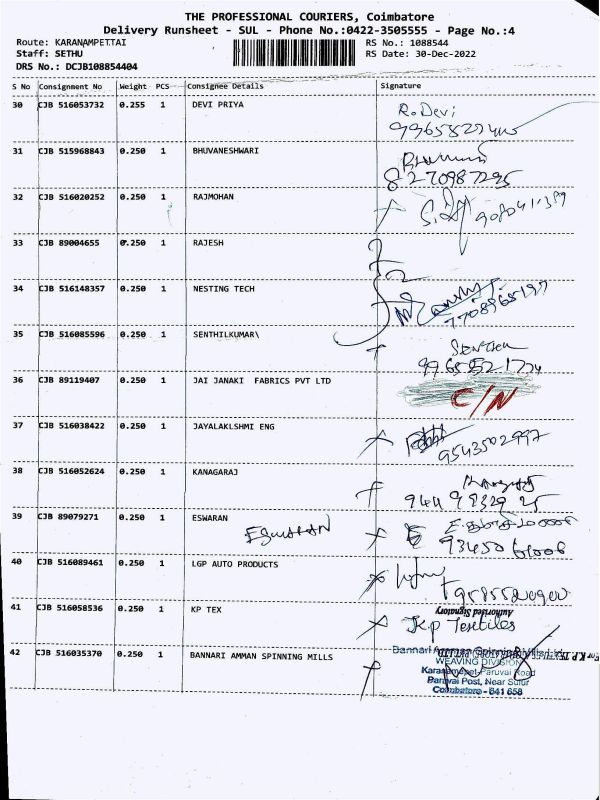 THE PROFESSIONAL COURIERS, Coimbatore
Delivery Runsheet - SUL - Phone No.:0422-3505555 - Page No.:4
Route: KARANAMPETTAI RS No.: 1088544
Staff: SETHU RS Date: 30-Dec-2022
DRS No.: DCJB108854404
S No Consignment No Weight PCS Consignee Details Signature
30 CJB 516053732 0.255 1 DEVI PRIYA R.Devi
31 CJB 515968843 0.250 1 BHUVANESHWARI
8270987295
32 CJB 516020252 0.250 1 RAJMOHAN
33 CJB 89004655 0.250 1 RAJESH
34 CJB 516148357 0.250 1 NESTING TECH
7708965197
35 CJB 516085596 0.250 1 SENTHILKUMAR\
36 CJB 89119407 0.250 1 JAI JANAKI FABRICS PVT LTD C/N
37 CJB 516038422 0.250 1 JAYALAKLSHMI ENG
9543502997
38 CJB 516052624 0.250 1 KANAGARAJ
39 CJB 89079271 0.250 1 ESWARAN
40 CJB 516089461 0.250 1 LGP AUTO PRODUCTS
Authorised Signatory
41 CJB 516058536 0.250 1 KP TEX K.p Textiles
42 CJB 516035370 0.250 1 BANNARI AMMAN SPINNING MILLS
Bannari Amman Spinning Mills Ltd
WEAVING DIVISION
Karanampet-Paruvai Road
Paruvai Post, Near Sulur
Coimbatore - 641 658